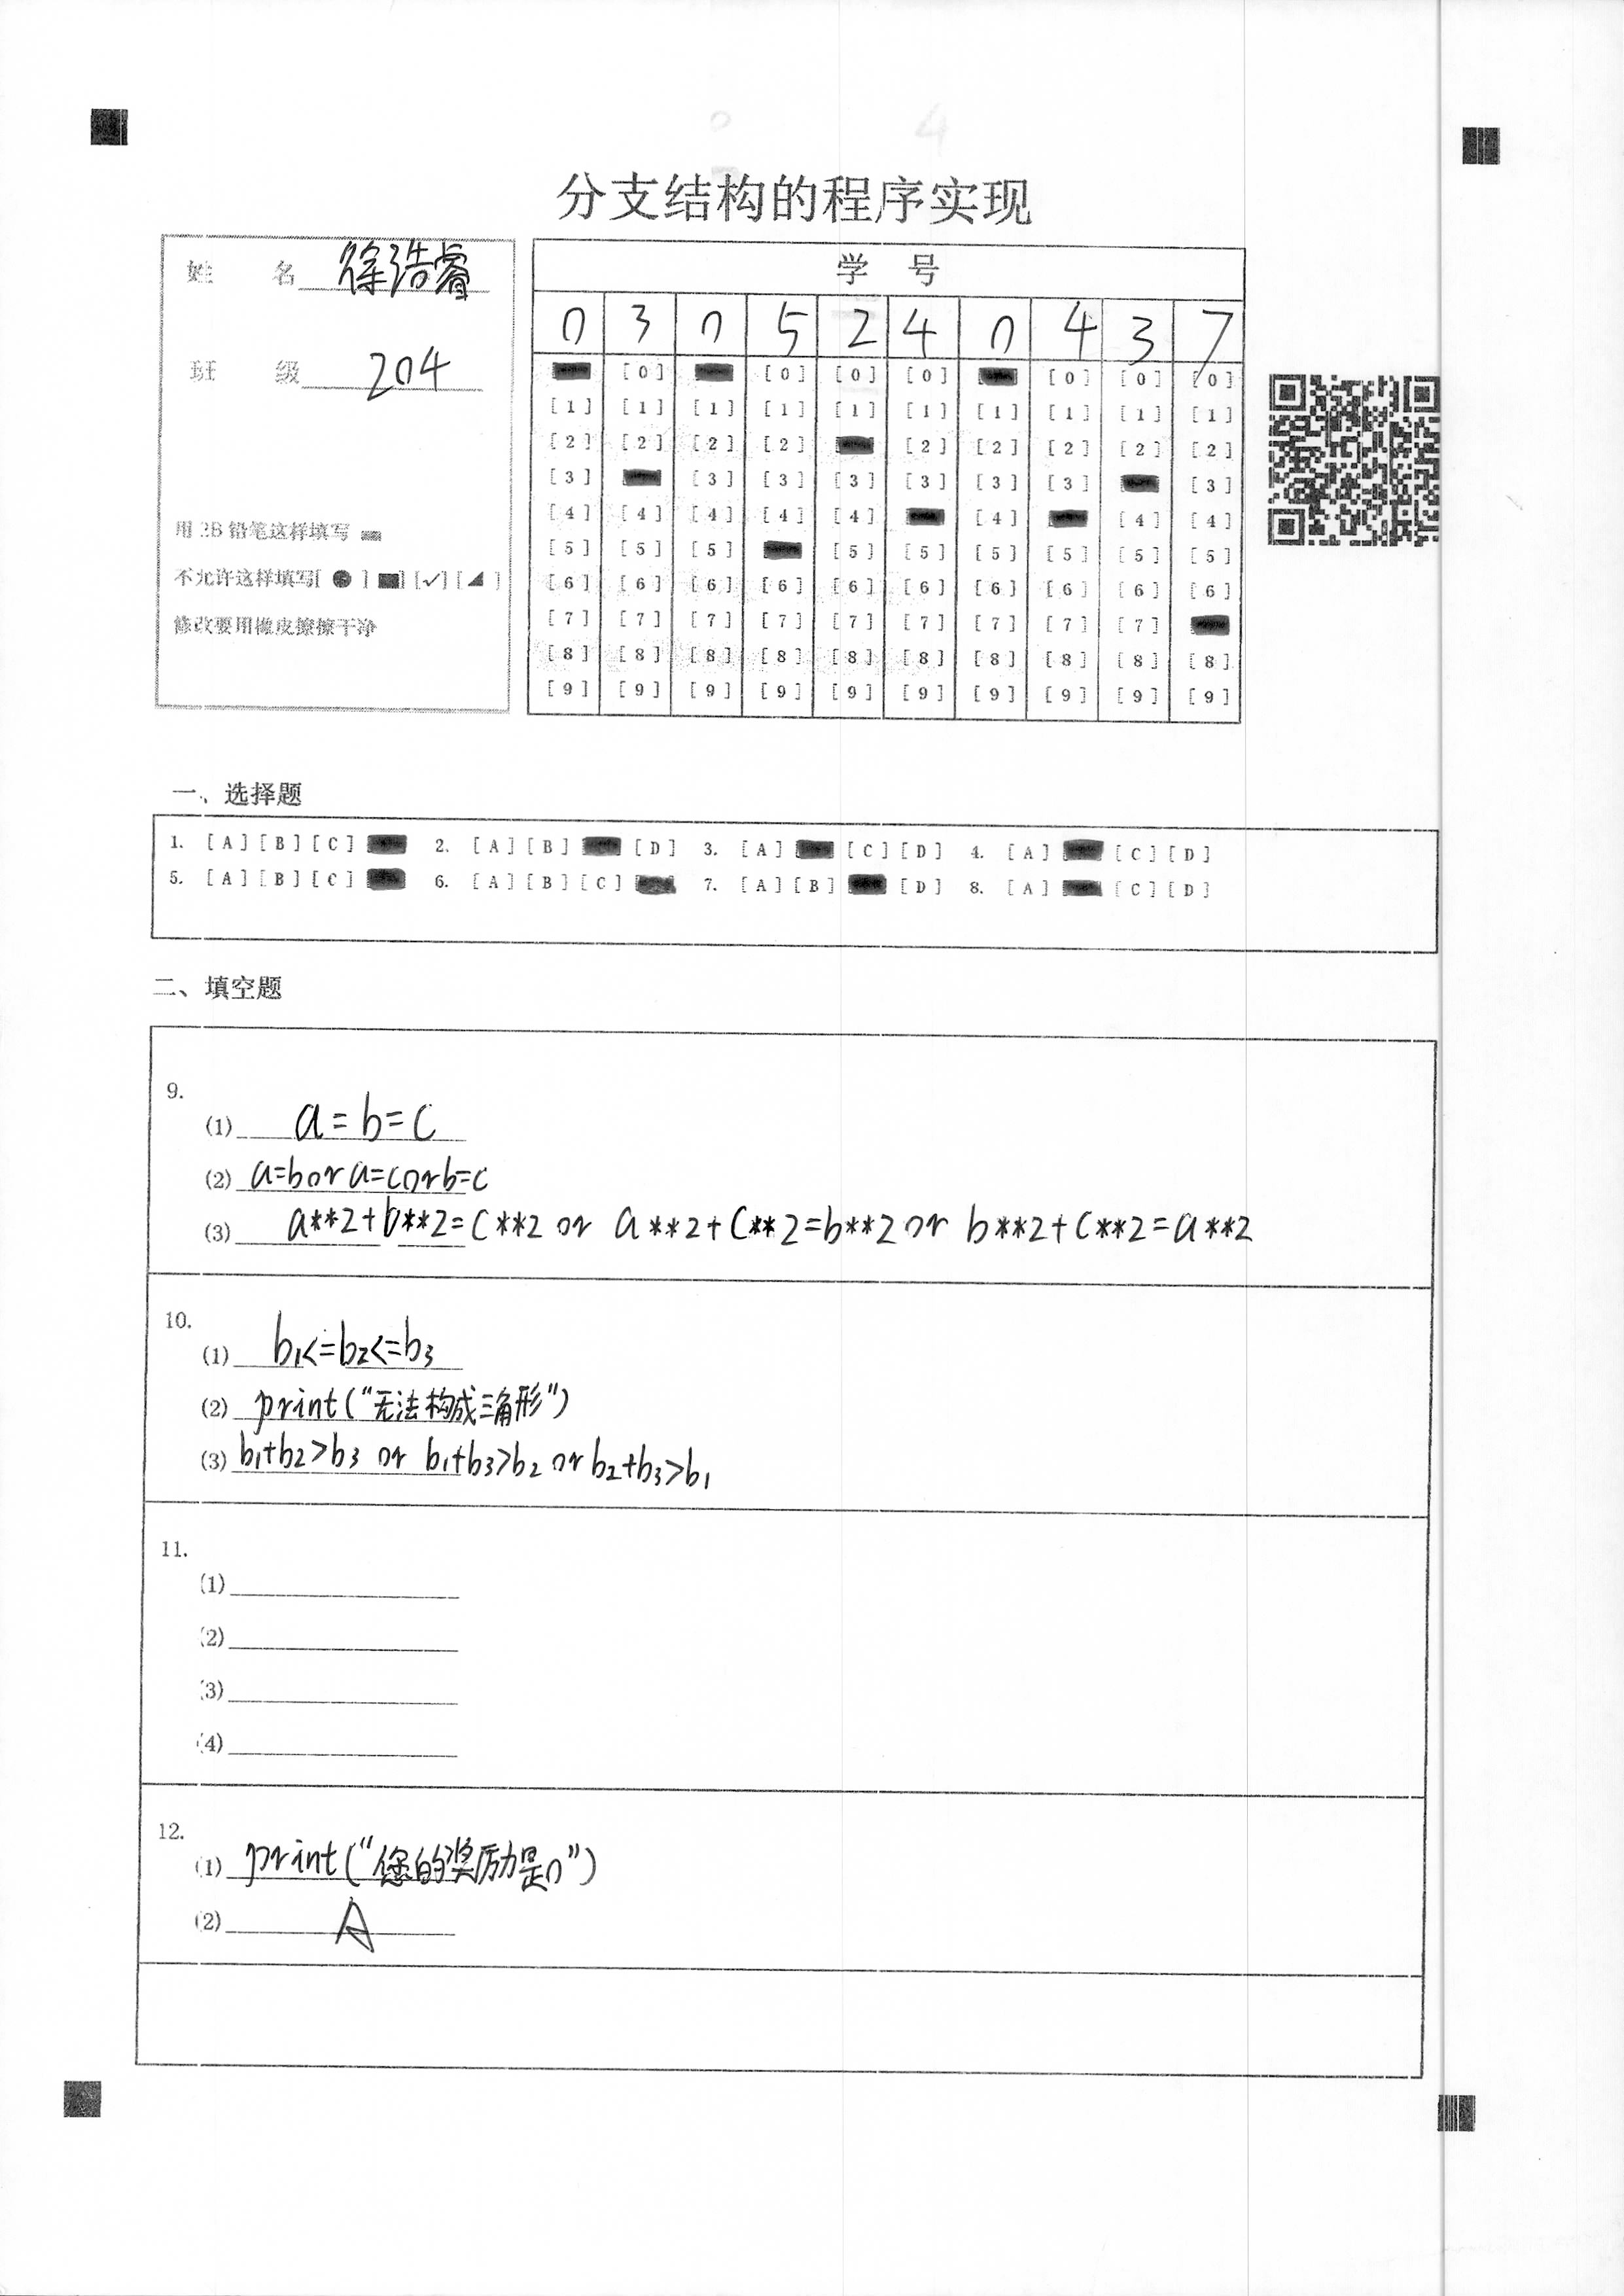 分支结构的程序实现
姓 名 徐浩睿
班 级 204
用 2B 铅笔这样填写
不允许这样填写[ ● ] [■] [✓] [◢ ]
修改要用橡皮擦擦干净
学 号
0 3 0 5 2 4 0 4 3 7
[0] [0] [0] [0] [0] [0] [0]
[1] [1] [1] [1] [1] [1] [1] [1] [1] [1]
[2] [2] [2] [2] [2] [2] [2] [2] [2]
[3] [3] [3] [3] [3] [3] [3] [3]
[4] [4] [4] [4] [4] [4] [4] [4]
[5] [5] [5] [5] [5] [5] [5] [5] [5]
[6] [6] [6] [6] [6] [6] [6] [6] [6] [6]
[7] [7] [7] [7] [7] [7] [7] [7] [7]
[8] [8] [8] [8] [8] [8] [8] [8] [8] [8]
[9] [9] [9] [9] [9] [9] [9] [9] [9] [9]
一、选择题
1. [A] [B] [C] 2. [A] [B] [D] 3. [A] [C] [D] 4. [A] [C] [D]
5. [A] [B] [C] 6. [A] [B] [C] 7. [A] [B] [D] 8. [A] [C] [D]
二、填空题
9.
(1) a=b=c
(2) a=b or a=c or b=c
(3) a**2+b**2=c**2 or a**2+c**2=b**2 or b**2+c**2=a**2
10.
(1) b1<=b2<=b3
(2) print("无法构成三角形")
(3) b1+b2>b3 or b1+b3>b2 or b2+b3>b1
11.
(1)
(2)
(3)
(4)
12.
(1) print("您的奖励是0")
(2) A